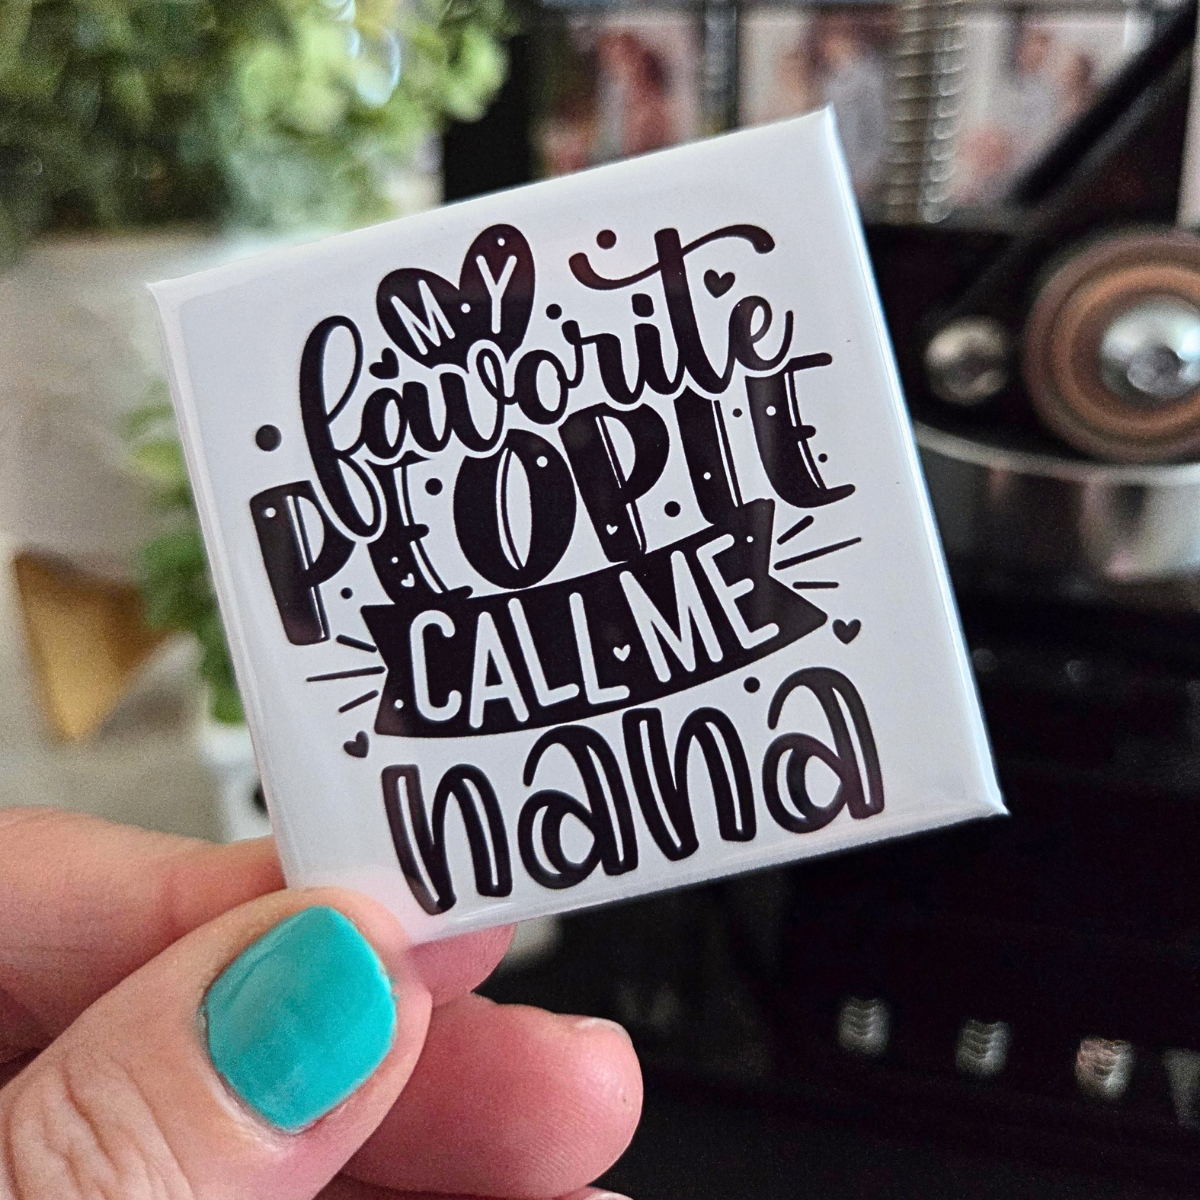 MY
favorite
PEOPLE
CALL ME
nana